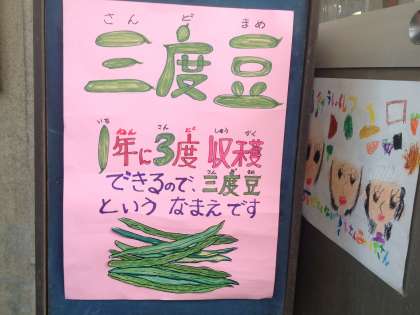 さん ど まめ
三度豆
いち ねん さん ど しゅう かく
1年に3度 収穫
さん ど まめ
できるので、三度豆
という なまえです